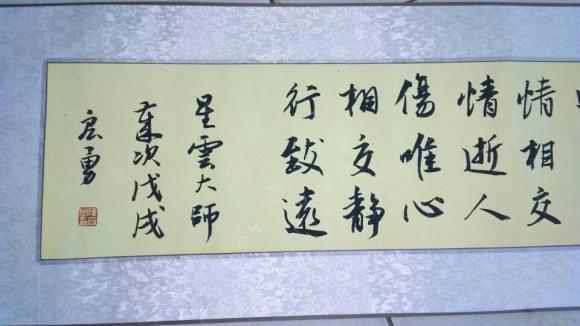 情相交
情逝人
傷唯心
相交静
行致遠
星雲大師
歲次戊戌
勇